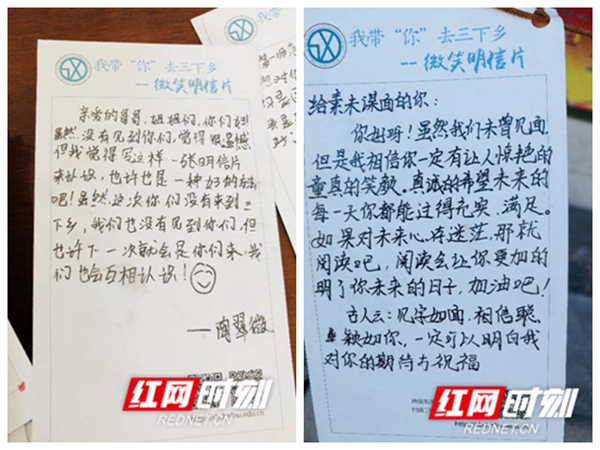 我带“你”去三下乡
--微笑明信片
亲爱的哥哥、姐姐们，你们好
虽然没有见到你们，觉得很遗憾
但我觉得写这样一张明信片
来认识，也许也是一种好的方法
吧！虽然这次你们没有来到三
下乡，我们也没有见到你们，但
也许下一次就会是你们来，我
们也会互相认识！
——陶翠微
红网时刻
REDNET.CN
我带“你”去三下乡
--微笑明信片
给素未谋面的你：
你好呀！虽然我们未曾见面，
但是我相信你一定有让人惊艳的
童真的笑颜。真诚的希望未来的
每一天你都能过得充实、满足。
如果对未来心存迷茫，那就
阅读吧，阅读会让你更加的
明了你未来的日子，加油吧！
古人云：见字如面，相信聪
颖如你，一定可以明白我
对你的期待与祝福
红网时刻
REDNET.CN